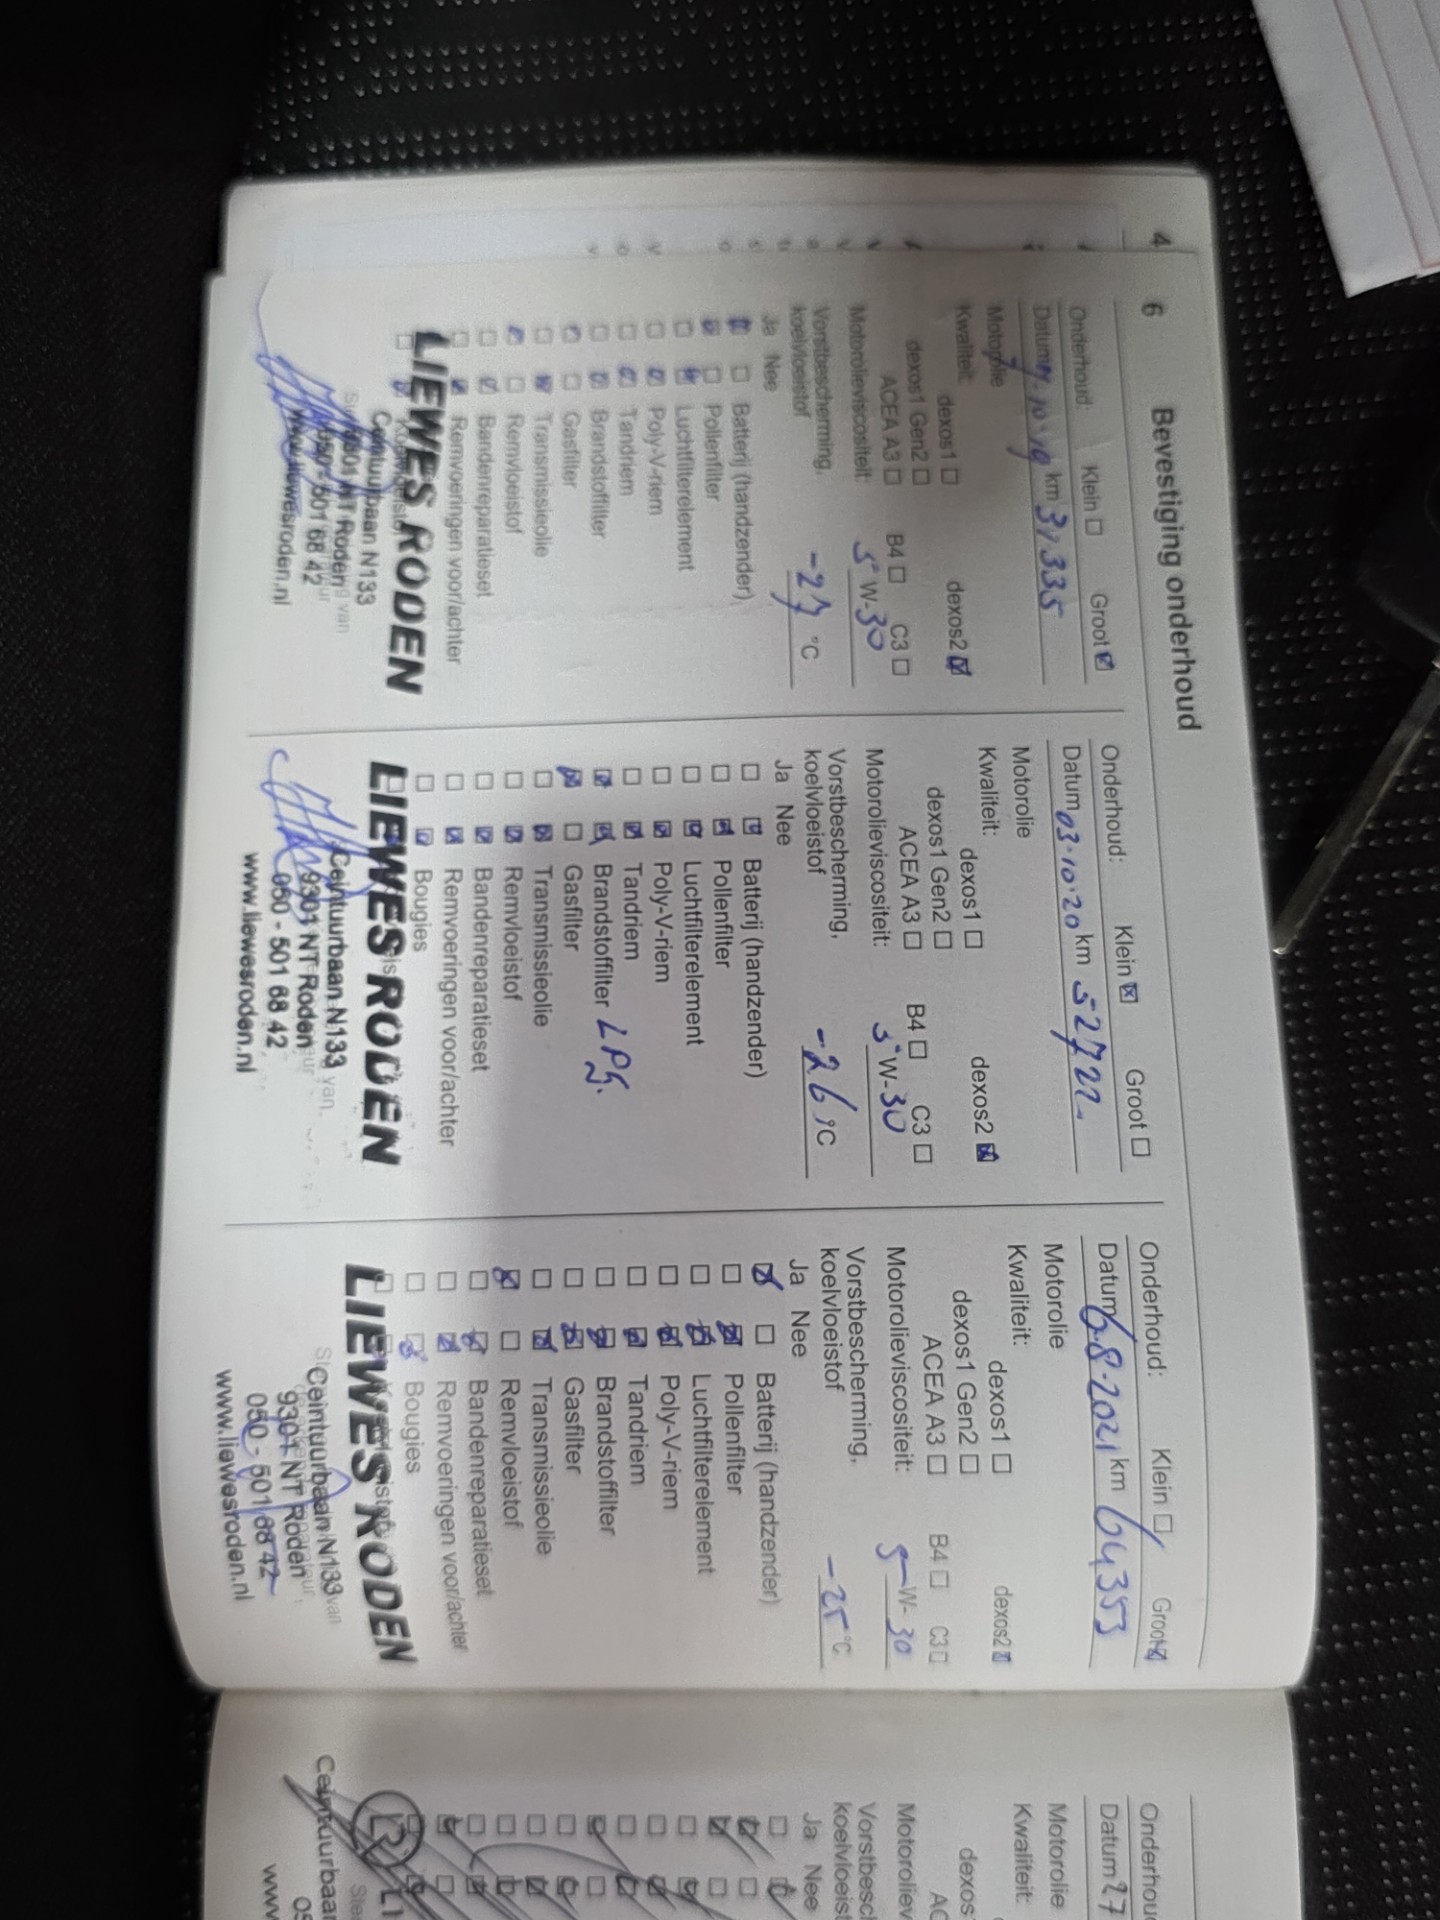 4
6 Bevestiging onderhoud
Onderhoud: Klein Groot
Datum km 31335
Motorolie
Kwaliteit: dexos1 dexos2
dexos1 Gen2
ACEA A3 B4 C3
Motorolieviscositeit: 5 W-30
Vorstbescherming,
koelvloeistof -27 °C
Ja Nee
Batterij (handzender)
Pollenfilter
Luchtfilterelement
Poly-V-riem
Tandriem
Brandstoffilter
Gasfilter
Transmissieolie
Remvloeistof
Bandenreparatieset
Remvoeringen voor/achter
LIEWES RODEN
Ceintuurbaan N133
9301 NT Roden
050 - 501 68 42
www.liewesroden.nl
Onderhoud: Klein Groot
Datum 03·10·20 km 52722
Motorolie
Kwaliteit: dexos1 dexos2
dexos1 Gen2
ACEA A3 B4 C3
Motorolieviscositeit: 5 W-30
Vorstbescherming,
koelvloeistof -26 °C
Ja Nee
Batterij (handzender)
Pollenfilter
Luchtfilterelement
Poly-V-riem
Tandriem
Brandstoffilter LPG.
Gasfilter
Transmissieolie
Remvloeistof
Bandenreparatieset
Remvoeringen voor/achter
Bougies
LIEWES RODEN
Ceintuurbaan N133
9301 NT Roden
050 - 501 68 42
www.liewesroden.nl
Onderhoud: Klein Groot
Datum 6-8-2021 km 64353
Motorolie
Kwaliteit: dexos1 dexos2
dexos1 Gen2
ACEA A3 B4 C3
Motorolieviscositeit: 5 W-30
Vorstbescherming,
koelvloeistof -25 °C
Ja Nee
Batterij (handzender)
Pollenfilter
Luchtfilterelement
Poly-V-riem
Tandriem
Brandstoffilter
Gasfilter
Transmissieolie
Remvloeistof
Bandenreparatieset
Remvoeringen voor/achter
Bougies
LIEWES RODEN
Ceintuurbaan N133
9301 NT Roden
050 - 501 68 42
www.liewesroden.nl
Onderhou
Datum 27
Motorolie
Kwaliteit:
dexos
AC
Motoroliev
Vorstbesch
koelvloeist
Ja Nee
Ceintuurbaa
05
www